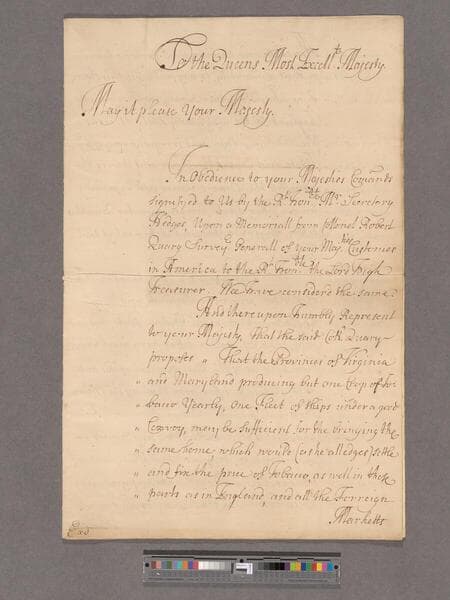 To the Queens Most Excell.t Majesty
May it please Your Majesty.
In Obedience to your Majesties Com̃ands
signifyed to Us by the R.t Hon.ble M.r Secretary
Hedges, Upon a Memoriall from Collonel Robert
Quary Survey.r Generall of your Maj.ties Customes
in America to the R.t Hon.ble the Lord High
Treasurer. We have considerd the same.
And thereupon humbly Represent
to your Majesty, That the said Coll. Quary
proposes " That the Provinces of Virginia
" and Maryland producing but one Crop of To-
" bacco Yearly, One Fleet of ships under a good
" Convoy, may be sufficient for the bringing the
" same home, which would (as he alledges) settle
" and fix the price of Tobacco, as well in those
" parts as in England, and all the Forreign
Marketts